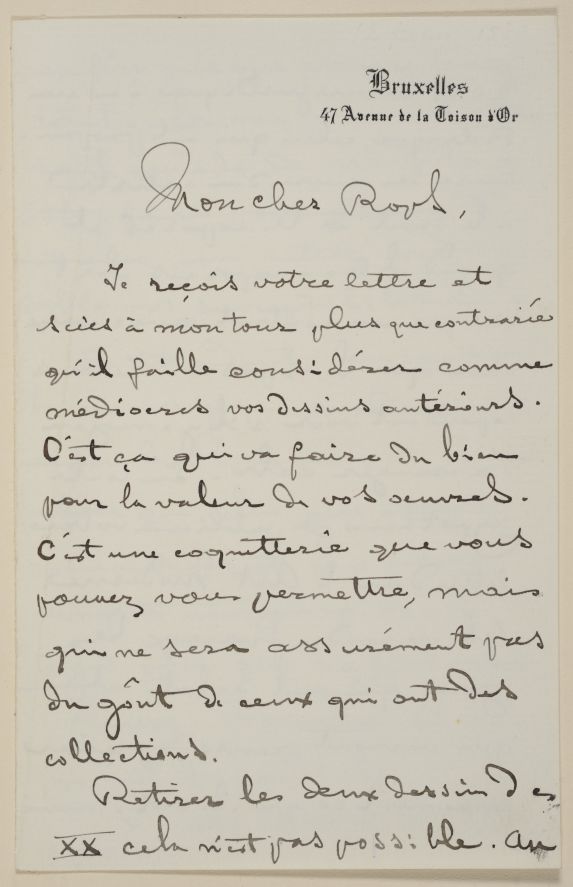 Bruxelles
47 Avenue de la Toison d'Or
Mon cher Rops,
Je reçois votre lettre et
suis à mon tour plus que contrarié
qu'il faille considérer comme
médiocres vos dessins antérieurs.
C'est ça qui va faire du bien
pour la valeur de vos oeuvres.
C'est une coquetterie que vous
pouvez vous permettre, mais
qui ne sera assurément pas
du goût de ceux qui ont des
collections.
Retirer les deux dessins des
XX cela n'est pas possible. Au